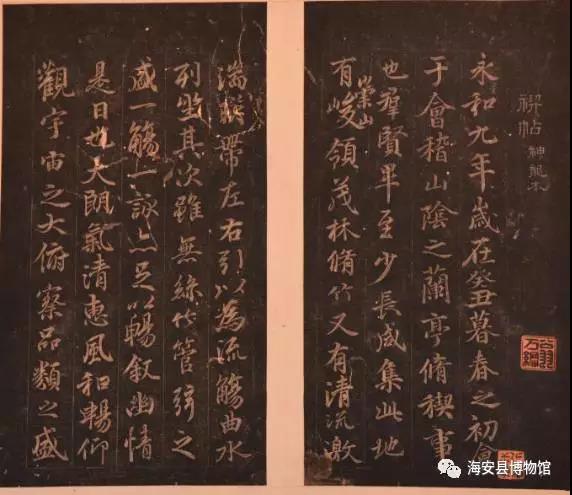 禊帖 神龍本
永和九年歲在癸丑暮春之初會
于會稽山陰之蘭亭脩禊事
也羣賢畢至少長咸集此地
有崇山峻領茂林脩竹又有清流激
湍暎帶左右引以為流觴曲水
列坐其次雖無絲竹管弦之
盛一觴一詠亦足以暢叙幽情
是日也天朗氣清惠風和暢仰
觀宇宙之大俯察品類之盛
海安县博物馆